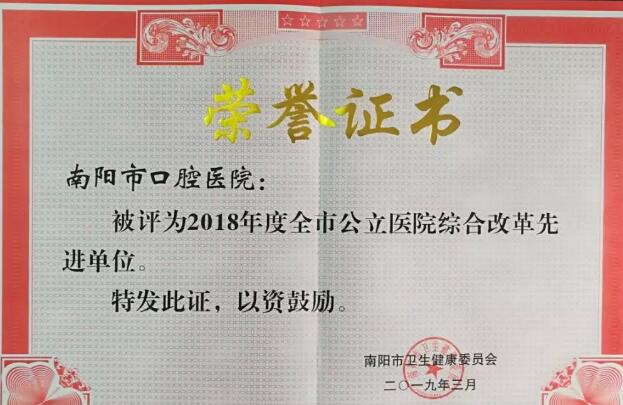 荣誉证书
南阳市口腔医院：
被评为2018年度全市公立医院综合改革先
进单位。
特发此证，以资鼓励。
南阳市卫生健康委员会
二〇一九年三月